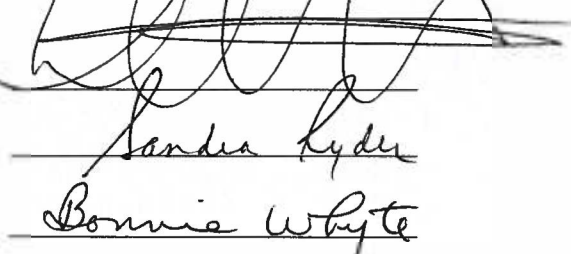 Sandra Ryder
Bonnie Whyte